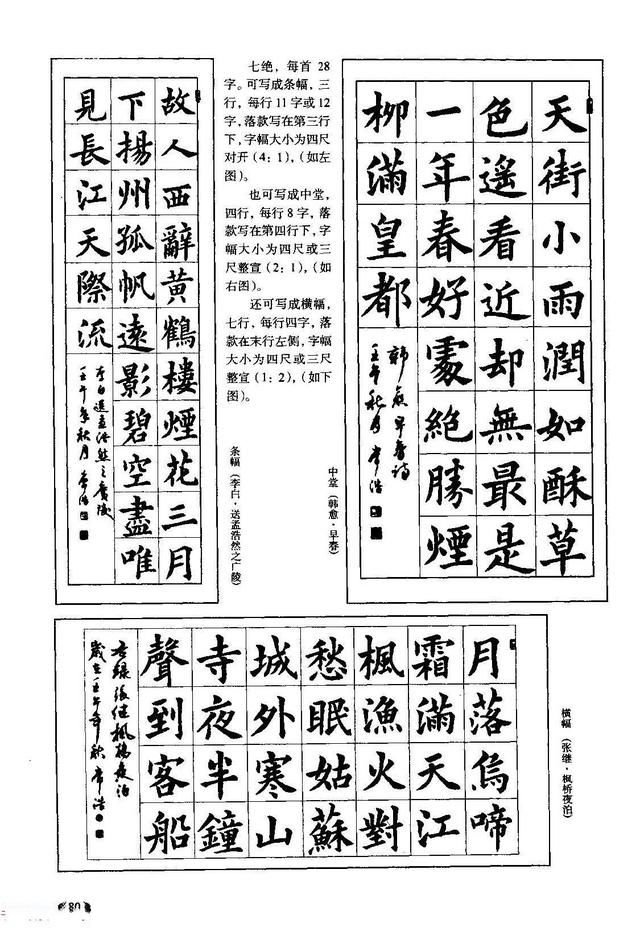 故人西辭黄鶴樓煙花三月
下揚州孤帆遠影碧空盡唯
見長江天際流
李白送孟浩然之廣陵
壬午年秋月
七绝，每首 28
字。可写成条幅，三
行，每行 11 字或 12
字，落款写在第三行
下，字幅大小为四尺
对开（4：1），（如左
图）。
也可写成中堂，
四行，每行 8 字，落
款写在第四行下，字
幅大小为四尺或三
尺整宣（2：1），（如
右图）。
还可写成横幅，
七行，每行四字，落
款在末行左侧，字幅
大小为四尺或三尺
整宣（1：2），（如下
图）。
条幅（李白·送孟浩然之广陵）
中堂（韩愈·早春）
天街小雨潤如酥草
色遥看近却無最是
一年春好處絶勝煙
柳滿皇都
韓愈早春詩
壬午秋月
月落烏啼
霜滿天江
楓漁火對
愁眠姑蘇
城外寒山
寺夜半鐘
聲到客船
右録張继楓橋夜泊
歲在壬午年秋
横幅（张继·枫桥夜泊）
80